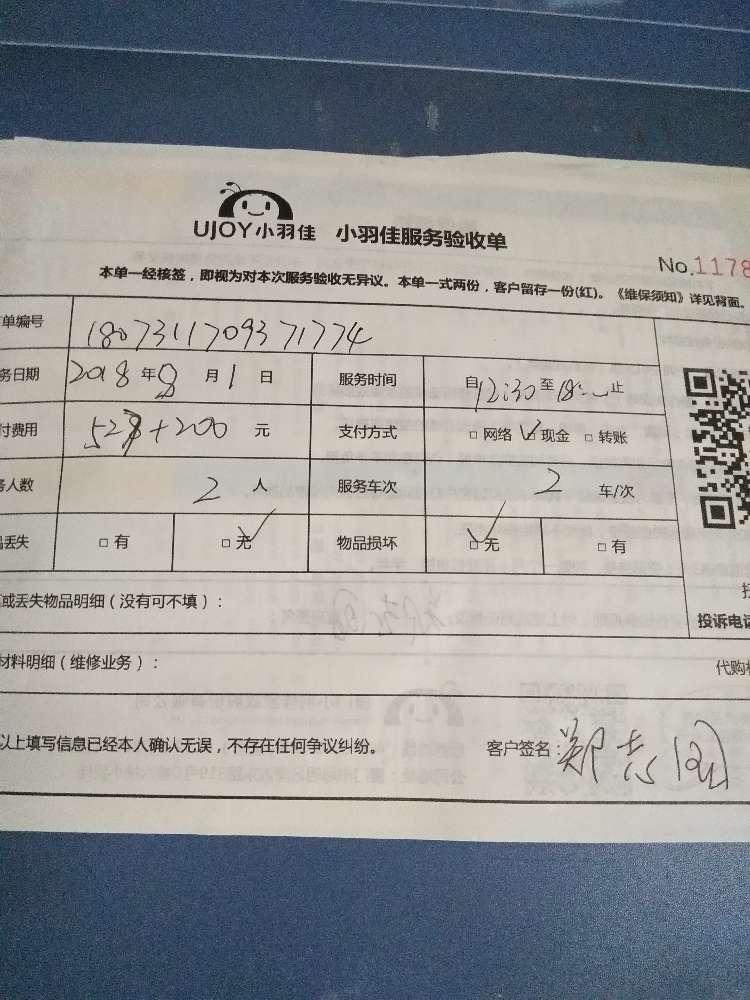 UJOY小羽佳 小羽佳服务验收单
No.1178
本单一经核签，即视为对本次服务验收无异议。本单一式两份，客户留存一份(红)。《维保须知》详见背面。
单编号 1807311709371774
务日期 2018 年 8 月 1 日 服务时间 自 12:30 至 18: 止
付费用 528+200 元 支付方式 □ 网络 □ 现金 □ 转账
务人数 2 人 服务车次 2 车/次
品丢失 □ 有 □ 无 物品损坏 □ 无 □ 有
或丢失物品明细（没有可不填）：
投诉电话
材料明细（维修业务）： 代购
以上填写信息已经本人确认无误，不存在任何争议纠纷。 客户签名：郑志国